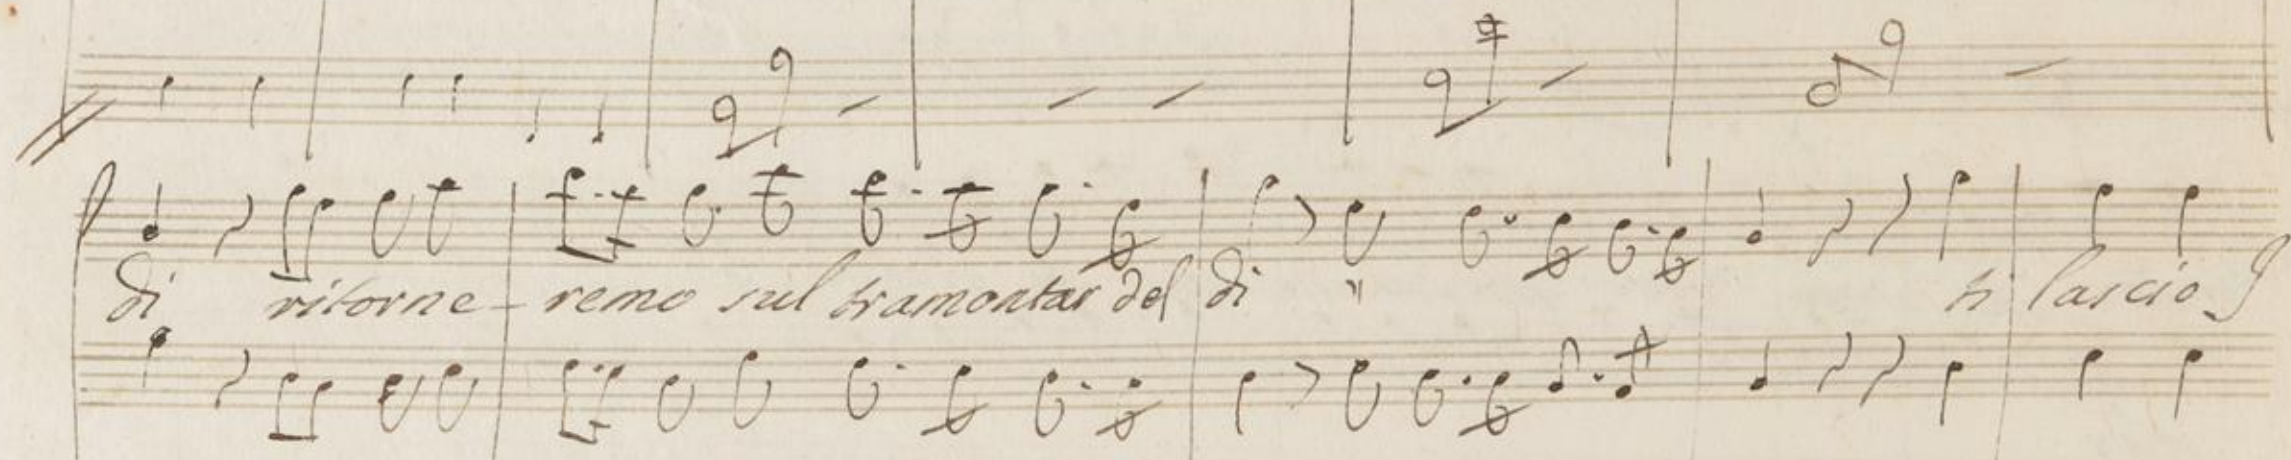 di ritorne - remo sul tramontar del di " ti lascio